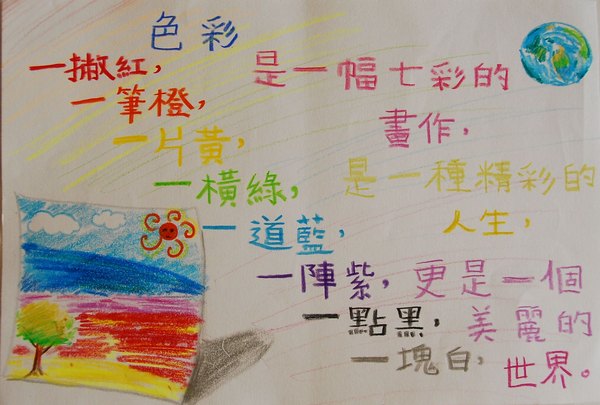 色彩
一撇紅，
一筆橙，
一片黃，
一橫綠，
一道藍，
一陣紫，
一點黑，
一塊白，
是一幅七彩的
畫作，
是一種精彩的
人生，
更是一個
美麗的
世界。